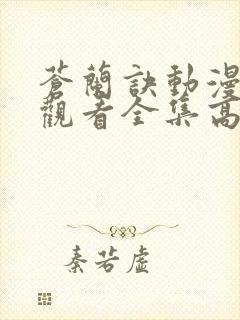 蒼蘭訣動漫
觀看全集高
秦若虛